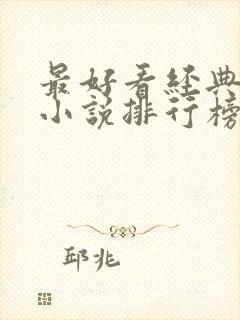 最好看经典
小说排行榜
邱兆